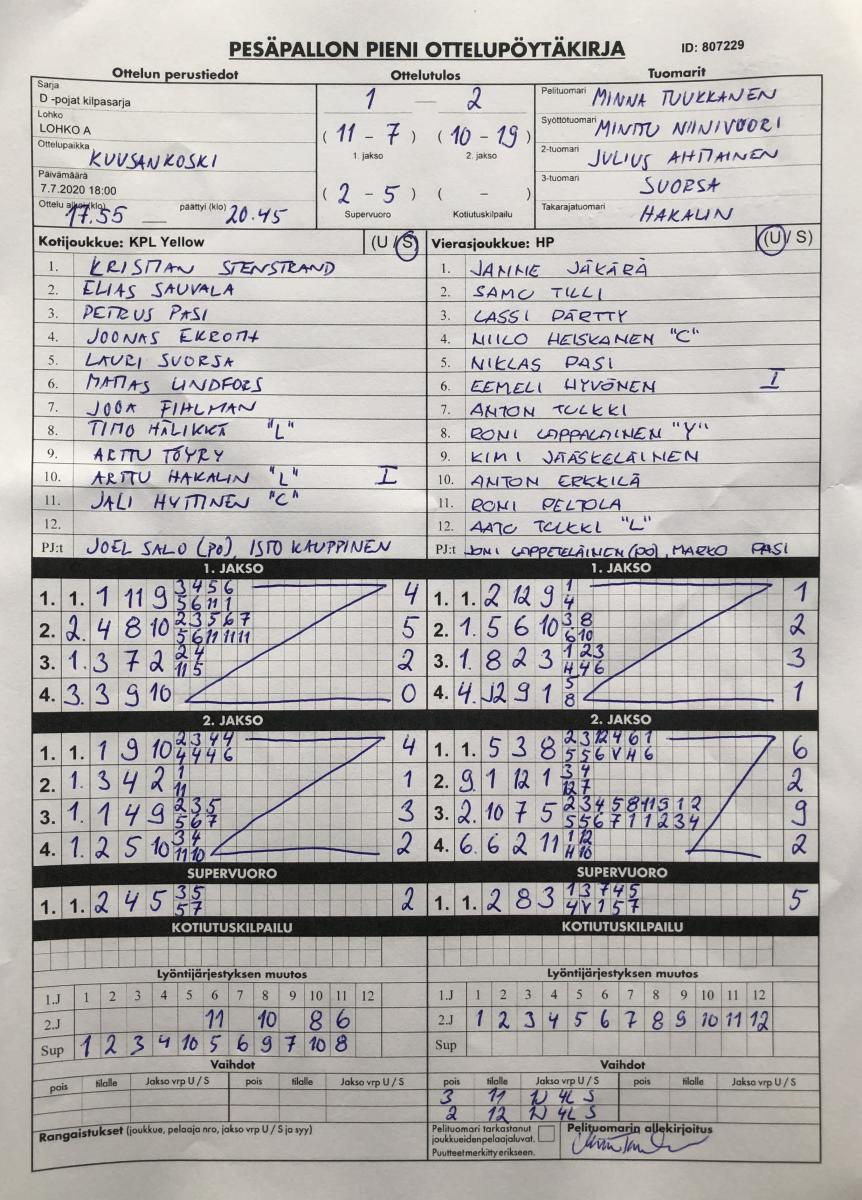 PESÄPALLON PIENI OTTELUPÖYTÄKIRJA ID: 807229
Ottelun perustiedot Ottelutulos Tuomarit
Sarja
D -pojat kilpasarja
Lohko
LOHKO A
Ottelupaikka KUUSANKOSKI
Päivämäärä
7.7.2020 18:00
Ottelu alkoi (klo) 17.55 päättyi (klo) 20.45
1 — 2
( 11 - 7 ) ( 10 - 19 )
1. jakso 2. jakso
( 2 - 5 ) ( - )
Supervuoro Kotiutuskilpailu
Pelituomari MINNA TUUKKANEN
Syöttötuomari MINTTU NIINIVUORI
2-tuomari JULIUS AHTIAINEN
3-tuomari SUORSA
Takarajatuomari HAKALIN
Kotijoukkue: KPL Yellow (U / S)
1. KRISTIAN STENSTRAND
2. ELIAS SAUVALA
3. PETRUS PASI
4. JOONAS EKROTH
5. LAURI SUORSA
6. MATIAS LINDFORS
7. JOOA FIHLMAN
8. TIMO HÄLIKKÄ "L"
9. ARTTU TÖYRY
10. ARTTU HAKALIN "L" I
11. JALI HYTTINEN "C"
12.
PJ:t JOEL SALO (PO), ISTO KAUPPINEN
Vierasjoukkue: HP (U / S)
1. JANNE JÄKÄRÄ
2. SAMU TILLI
3. LASSI PÄRTTY
4. NIILO HEISKANEN "C"
5. NIKLAS PASI
6. EEMELI HYVÖNEN I
7. ANTON TULKKI
8. RONI LAPPALAINEN "Y"
9. KIMI JÄÄSKELÄINEN
10. ANTON ERKKILÄ
11. RONI PELTOLA
12. AATU TULKKI "L"
PJ:t JONI LAPPETELÄINEN (PO), MARKO PASI
1. JAKSO
1. 1. 1 11 9 3 4 5 6 4
5 6 11 1
2. 2. 4 8 10 2 3 5 6 7 5
5 6 11 11 11
3. 1. 3 7 2 2 4 2
11 5
4. 3. 3 9 10 0
1. JAKSO
1. 1. 2 12 9 1 1
4
2. 1. 5 6 10 3 8 2
6 10
3. 1. 8 2 3 1 2 3 3
4 4 6
4. 4. 12 9 1 5 1
8
2. JAKSO
1. 1. 1 9 10 2 3 4 4 4
4 4 4 6
2. 1. 3 4 2 1 1
11
3. 1. 1 4 9 2 3 5 3
5 6 7
4. 1. 2 5 10 3 4 2
11 10
2. JAKSO
1. 1. 5 3 8 2 3 12 4 6 1 6
5 5 6 V H 6
2. 9. 1 12 1 3 4 2
12 7
3. 2. 10 7 5 2 3 4 5 8 11 3 1 2 9
5 5 6 7 1 1 2 3 4
4. 6. 6 2 11 1 12 2
4 10
SUPERVUORO
1. 1. 2 4 5 3 5 2
5 7
SUPERVUORO
1. 1. 2 8 3 1 3 7 4 5 5
4 V 1 5 7
KOTIUTUSKILPAILU
KOTIUTUSKILPAILU
Lyöntijärjestyksen muutos
1.J 1 2 3 4 5 6 7 8 9 10 11 12
2.J 11 10 8 6
Sup 1 2 3 4 10 5 6 9 7 10 8
Lyöntijärjestyksen muutos
1.J 1 2 3 4 5 6 7 8 9 10 11 12
2.J 1 2 3 4 5 6 7 8 9 10 11 12
Sup
Vaihdot
pois tilalle Jakso vrp U / S pois tilalle Jakso vrp U / S
Vaihdot
pois tilalle Jakso vrp U / S pois tilalle Jakso vrp U / S
3 11 1J 4L S
2 12 1J 4L S
Rangaistukset (joukkue, pelaaja nro, jakso vrp U / S ja syy)
Pelituomari tarkastanut
joukkueiden pelaajaluvat.
Puutteet merkitty erikseen.
Pelituomarin allekirjoitus